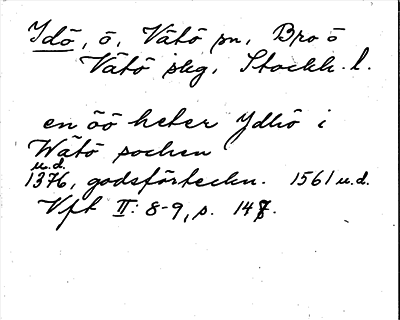 Idö, ö, Vätö sn, Bro ö
Vätö skg, Stockh. l.
en öö heter Ydhö i
Wätö sochen
u.d.
1376, godsförteckn. 1561 u.d.
Vft II: 8-9, s. 147.